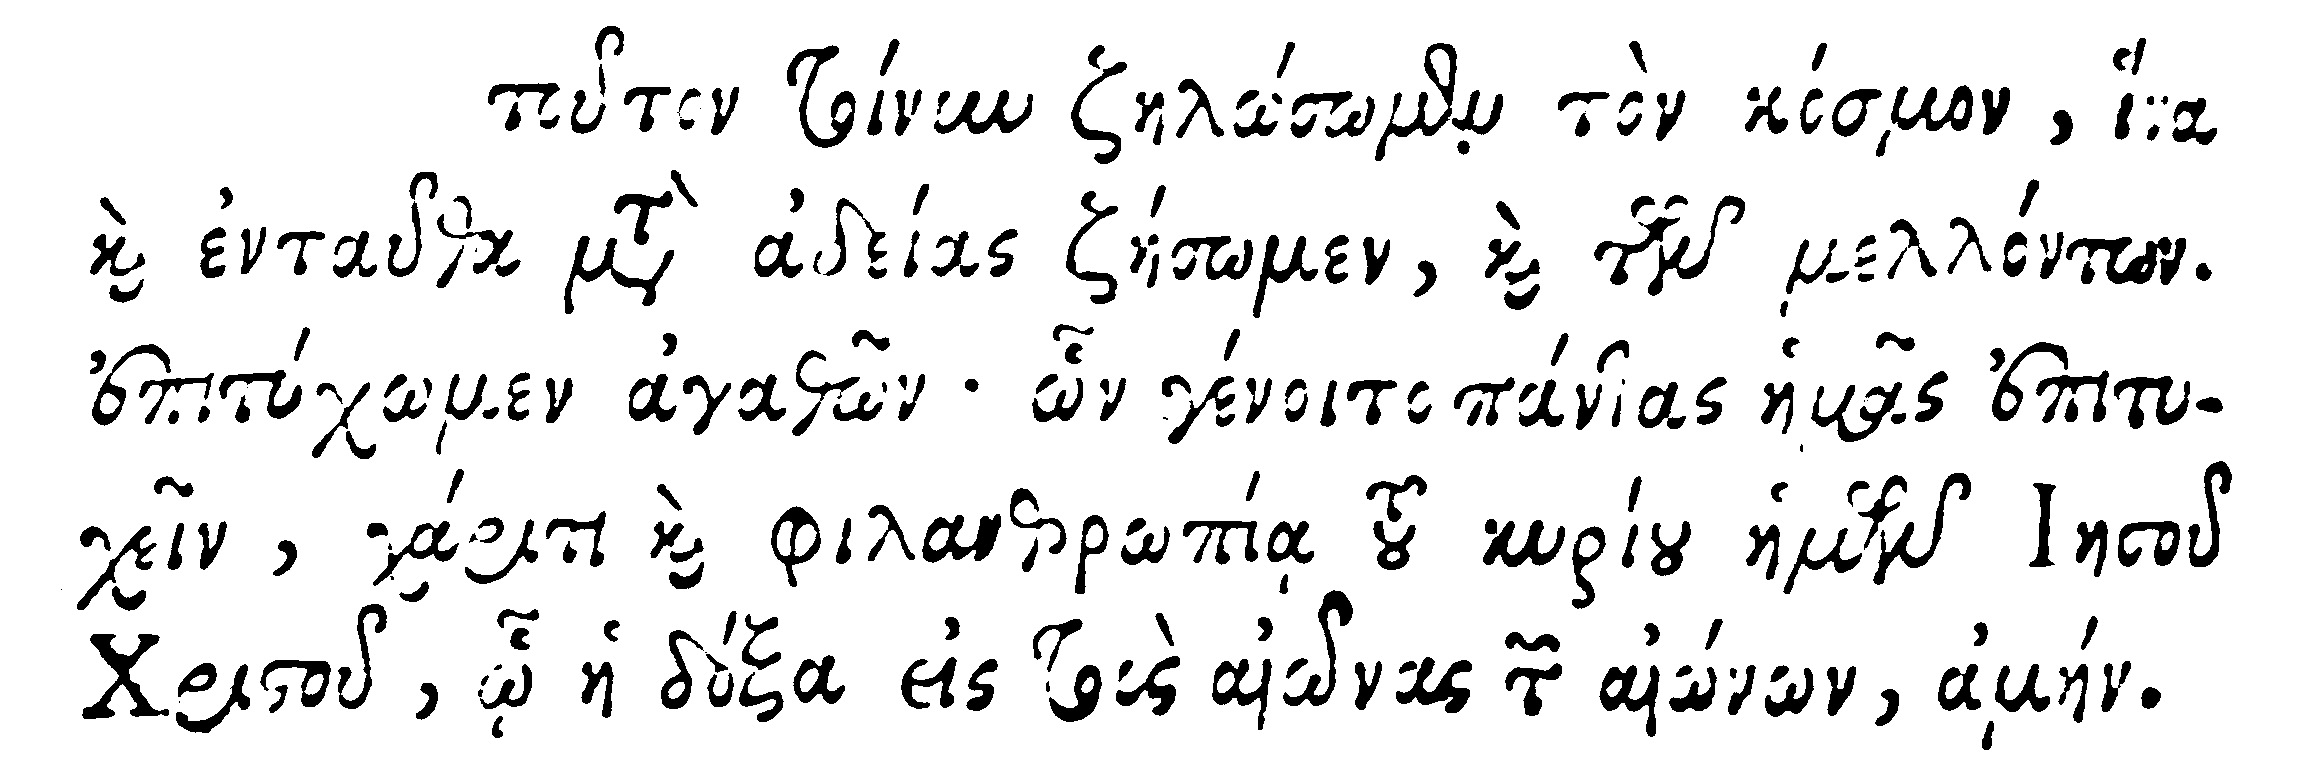 τοῦτον τοίνυν ζηλώσωμεν τὸν κόσμον, ἵνα
καὶ ἐνταῦθα μετὰ ἀδείας ζήσωμεν, καὶ τῶν μελλόντων.
ἐπιτύχωμεν ἀγαθῶν· ὧν γένοιτο πάντας ἡμᾶς ἐπιτυ-
χεῖν, χάριτι καὶ φιλανθρωπίᾳ τοῦ κυρίου ἡμῶν Ιησοῦ
Χριστοῦ, ᾧ ἡ δόξα εἰς τοὺς αἰῶνας τῶν αἰώνων, ἀμήν.